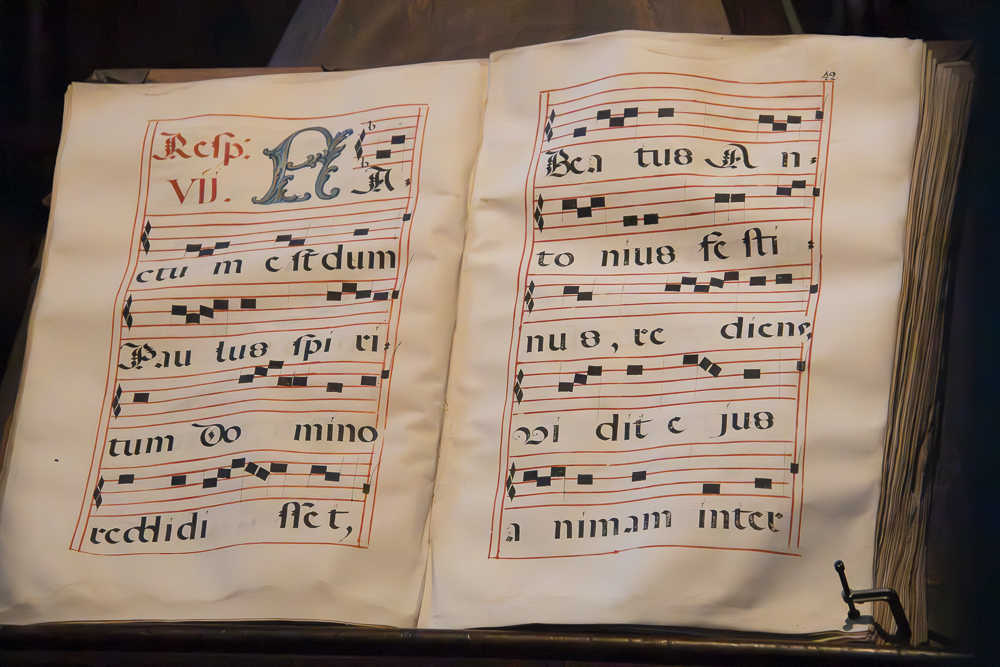 Reſp: F A-
VII.
ctu m e ſt dum
Pau lus ſpi ri-
tum Do mino
reddidi ſſe t,
42
Bea tus A n-
to nius fe ſti
nu s, re diens,
vi dit e jus
a nimam inter